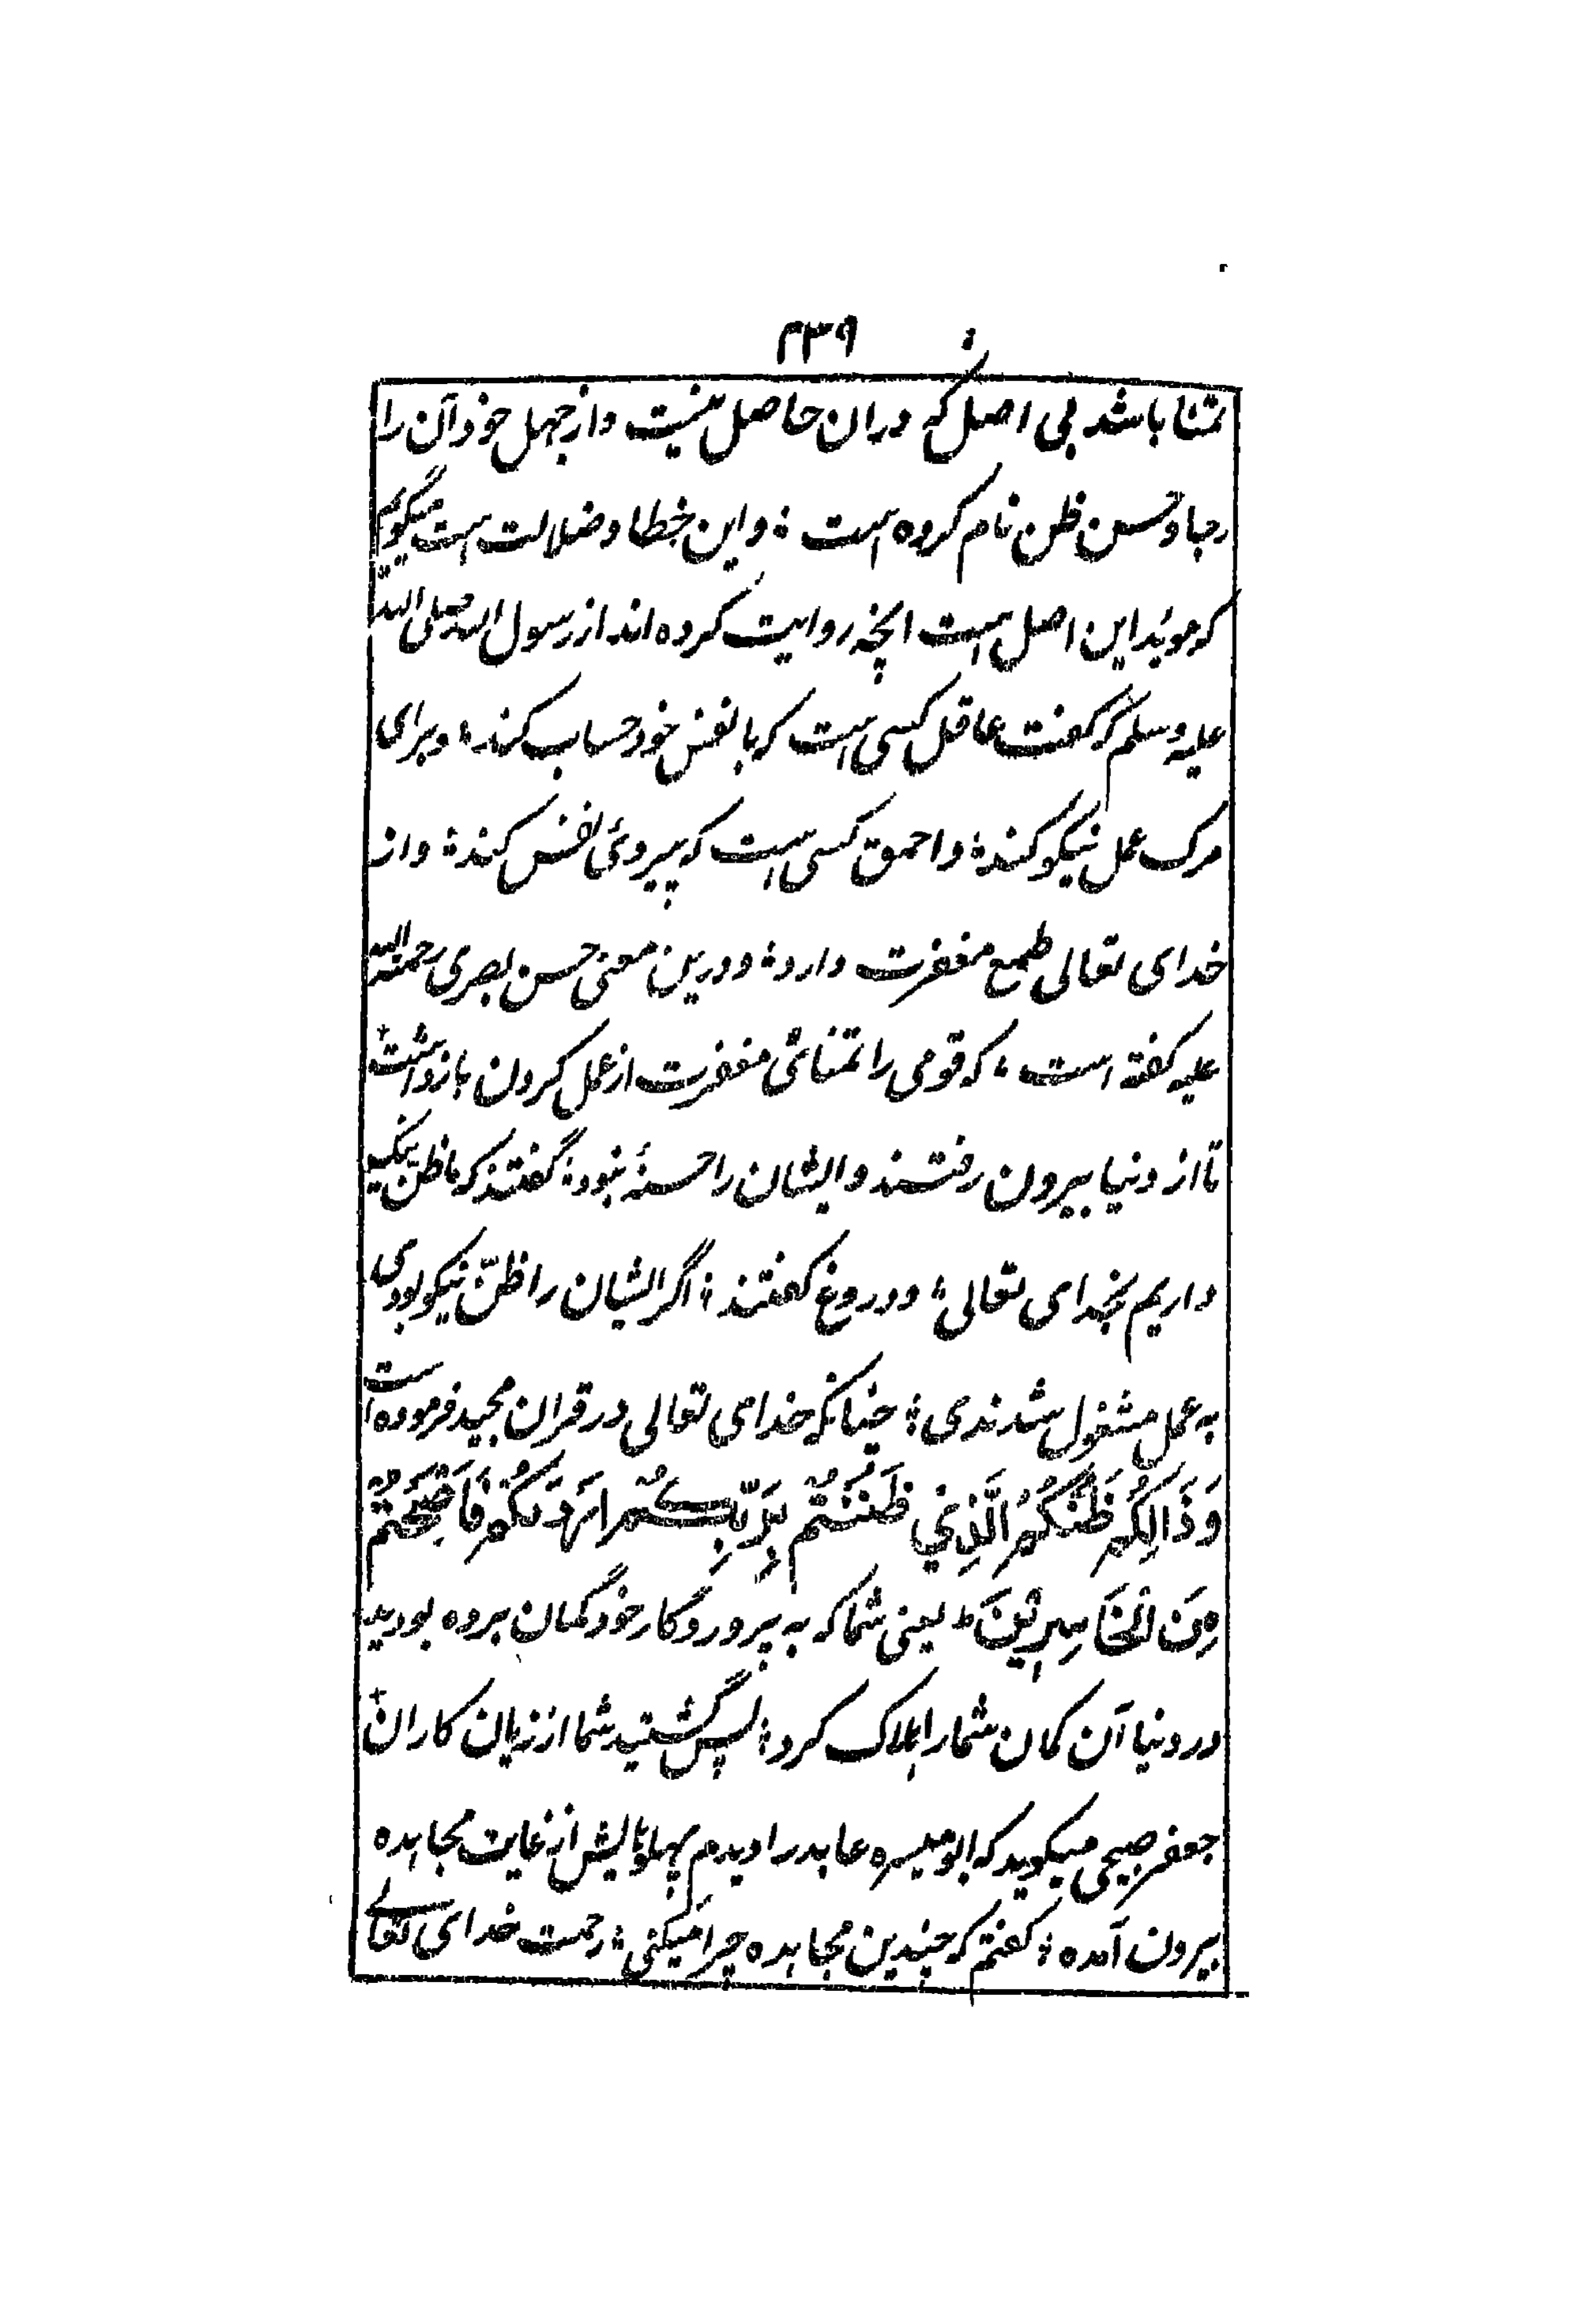 ۴۳۹
تمنا باشد بی اصل که دران حاصل نیست و از جهل خود آن را
رجا و حسن ظن نام کرده است ؛ و این خطا و ضلالت است میگویم
که موید این اصل است انچه روایت کرده اند از رسول الله صلی الله
علیه وسلم که گفت عاقل کسی است که با نفس خود حساب کند ؛ و برای
مرک عمل نیکو کند ؛ و احمق کسی است که پیروئ نفس کند ؛ و از
خدای تعالی طمع مغفرت دارد ؛ و درین معنی حسن بصری رحمة الله
علیه گفته است ، که قومی را تمنائی مغفرت از عمل کردن بازداشت
تا از دنیا بیرون رفتند و ایشان را حسنهٔ نبود ؛ گفتند که ما ظن نیک
داریم بخدای تعالی ؛ و دروغ گفتند ؛ اگر ایشان را ظنّ نیکو بودی
به عمل مشغول شدندی ؛ چنانکه خدای تعالی در قران مجید فرموده است
وَذَالِكُمْ ظَنُّكُمُ الَّذِي ظَنَنْتُمْ بِرَبِّكُمْ اَرْدَىٰكُمْ فَاَصْبَحْتُمْ
مِنَ الْخَاسِرِيْنَ ط یعنی شما که به پروردگار خود گمان برده بودید
در دنیا آن گمان شما را هلاک کرد ؛ پس گشتید شما از زیان کاران
جعفر صبحی میگوید که ابو میسره عابد را دیدم پهلوهایش از غایت مجاهده
بیرون آمده ؛ گفتم که چندین مجاهده چرا میکنی ؛ رحمت خدای تعالے